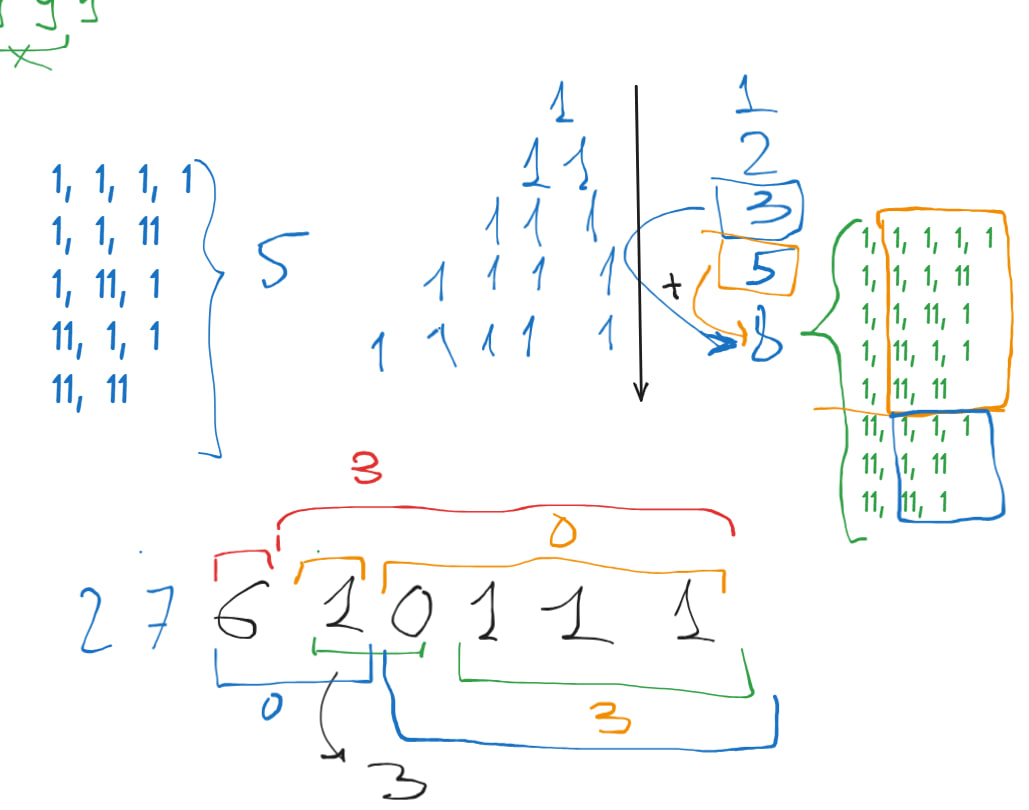 9 9
1, 1, 1, 1
1, 1, 11
1, 11, 1
11, 1, 1
11, 11
5
1
1 1
1 1 1
1 1 1 1
1 1 1 1 1
1
2
3
5
8
+
1, 1, 1, 1, 1
1, 1, 1, 11
1, 1, 11, 1
1, 11, 1, 1
1, 11, 11
11, 1, 1, 1
11, 1, 11
11, 11, 1
3
0
2 7 6 1 0 1 1 1
0
3
3